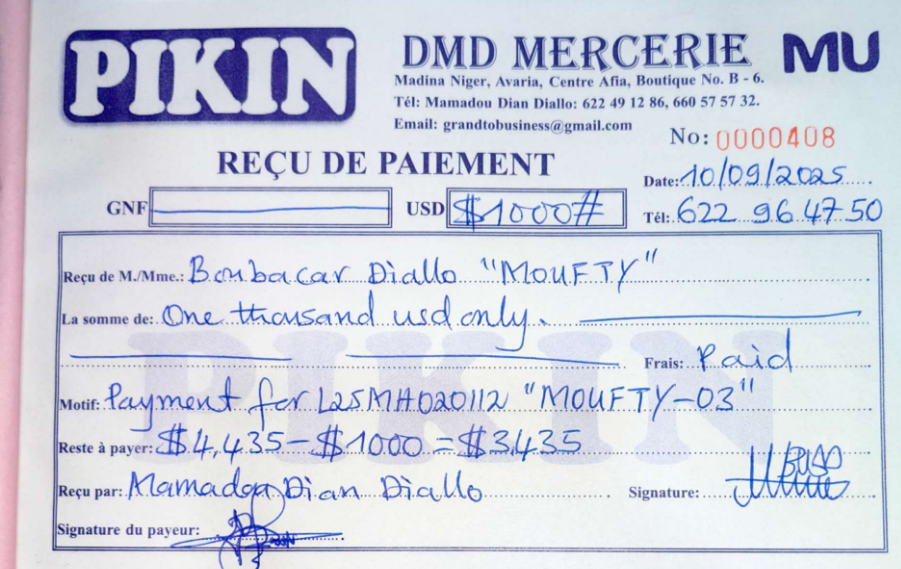 PIKIN
DMD MERCERIE
MU
Madina Niger, Avaria, Centre Afia, Boutique No. B - 6.
Tél: Mamadou Dian Diallo: 622 49 12 86, 660 57 57 32.
Email: grandtobusiness@gmail.com
No: 0000408
REÇU DE PAIEMENT
Date: 10/09/2025
GNF USD $1000#
Tél: 622 96 47 50
Reçu de M./Mme.: Boubacar Diallo "MOUFTY"
La somme de: One thousand usd only.
Frais: Paid
PIKIN
Motif: Payment for L25MH020112 "MOUFTY-03"
Reste à payer: $4,435-$1000=$3,435
Reçu par: Mamadou Dian Diallo
Signature:
Signature du payeur: